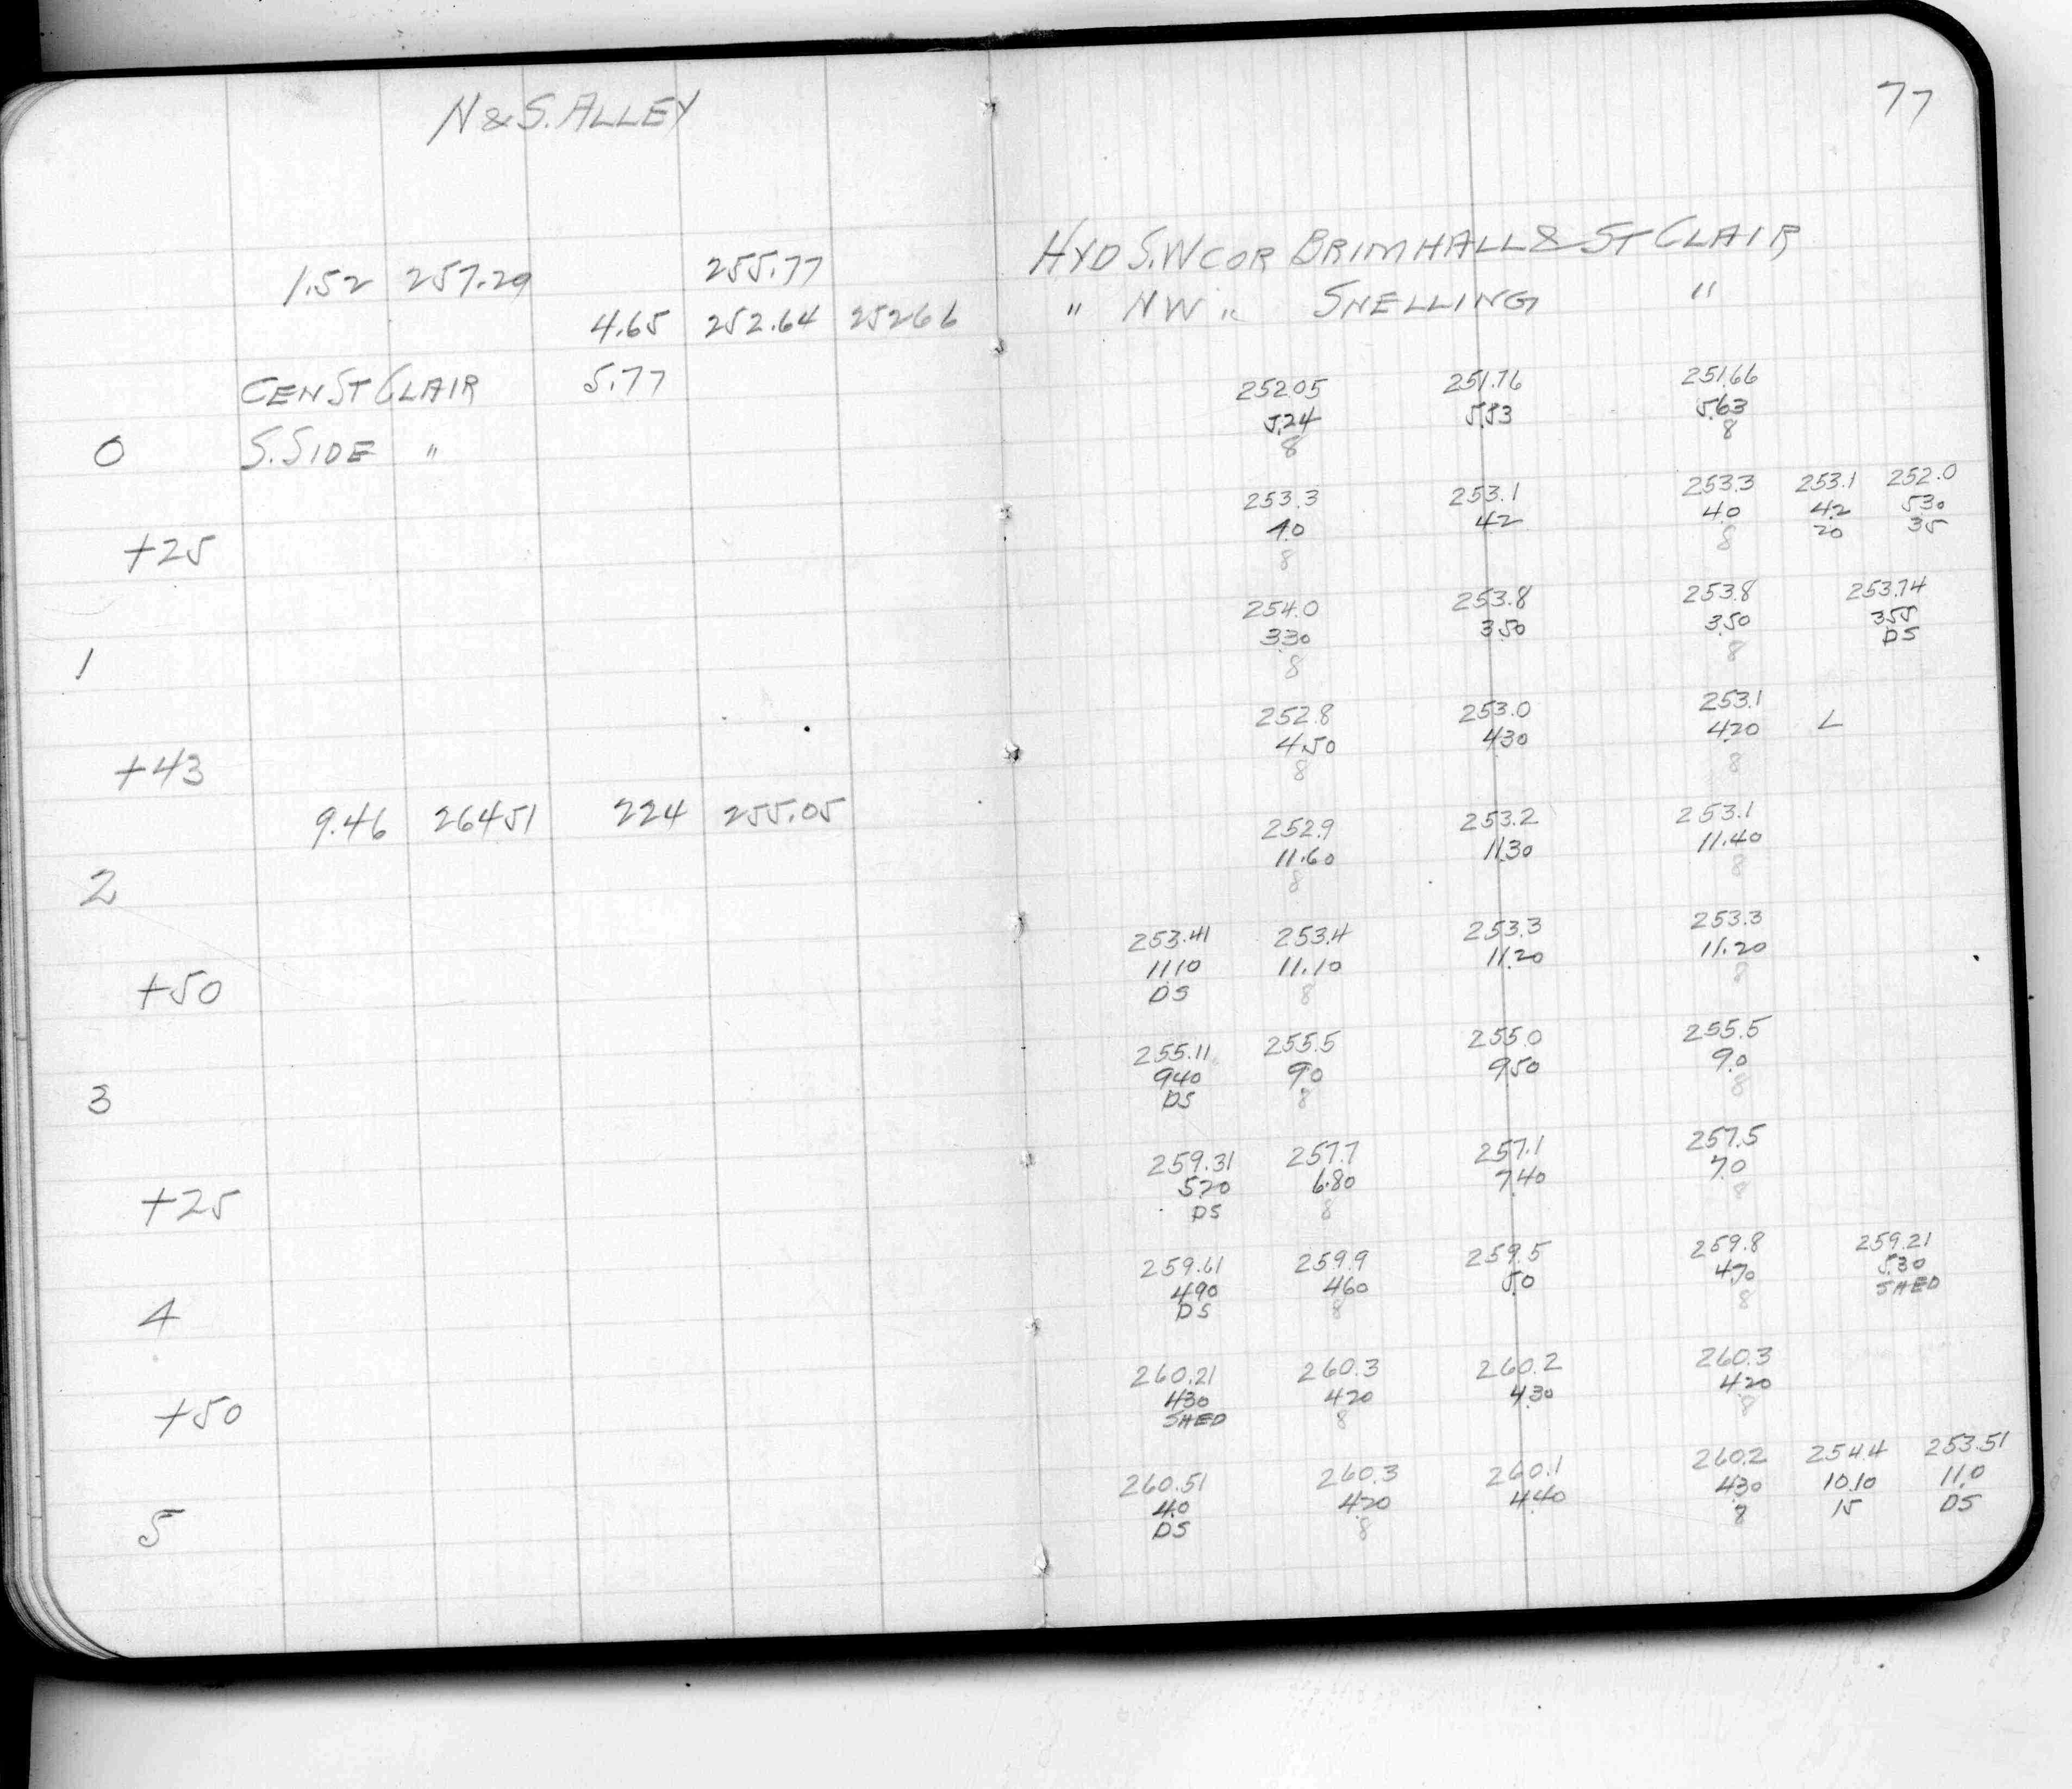 77
N & S. ALLEY
1.52 257.29 255.77 HYD S.W COR BRIMHALL & ST CLAIR
4.65 252.64 252.66 " NW " SNELLING "
CEN ST CLAIR 5.77
252.05 251.76 251.66
5.24 5.53 5.63
0 S. SIDE " 8 8
253.3 253.1 253.3 253.1 252.0
4.0 4.2 4.0 4.2 5.30
+25 8 8 20 35
254.0 253.8 253.8 253.74
3.30 3.50 3.50 3.55
1 8 8 DS
252.8 253.0 253.1
4.50 4.30 4.20 L
+43 8 8
9.46 264.51 2.24 255.05
252.9 253.2 253.1
11.60 11.30 11.40
2 8 8
253.41 253.4 253.3 253.3
11.10 11.10 11.20 11.20
+50 DS 8 8
255.11 255.5 255.0 255.5
9.40 9.0 9.50 9.0
3 DS 8 8
259.31 257.7 257.1 257.5
5.20 6.80 7.40 7.0
+25 DS 8 8
259.61 259.9 259.5 259.8 259.21
4.90 4.60 5.0 4.70 5.30
4 DS 8 8 SHED
260.21 260.3 260.2 260.3
4.30 4.20 4.30 4.20
+50 SHED 8 8
260.51 260.3 260.1 260.2 254.4 253.51
4.0 4.20 4.40 4.30 10.10 11.0
5 DS 8 8 15 DS